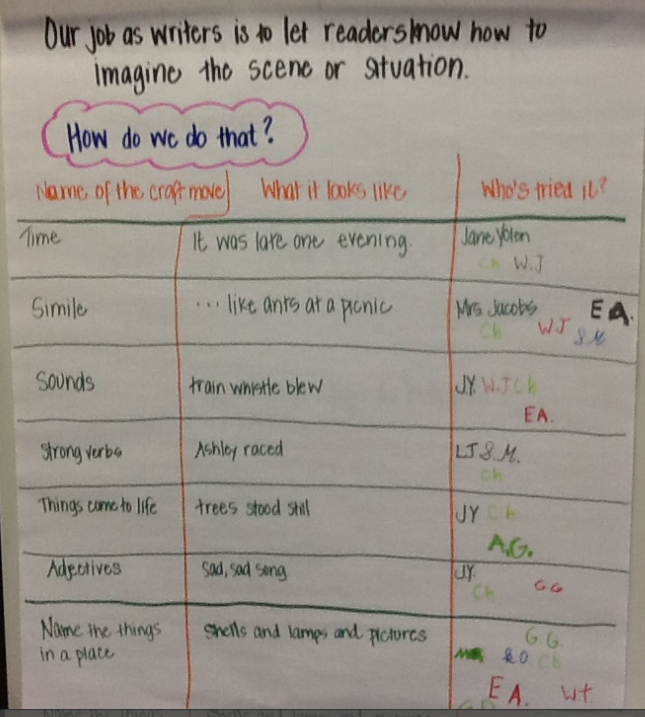 Our job as writers is to let readers know how to
imagine the scene or situation.
How do we do that?
Name of the craft move What it looks like Who's tried it?
Time It was late one evening. Jane Yolen
Ch W.J
Simile ... like ants at a picnic Mrs. Jacobs EA.
Ch WJ S.M
Sounds train whistle blew J.Y. W.J Ch
EA.
Strong verbs Ashley raced LJ S.M.
Ch
Things come to life trees stood still JY Ch
A.G.
Adjectives Sad, sad song J.Y.
Ch GG
Name the things Shells and lamps and pictures G.G.
in a place Ch
EA. Wt